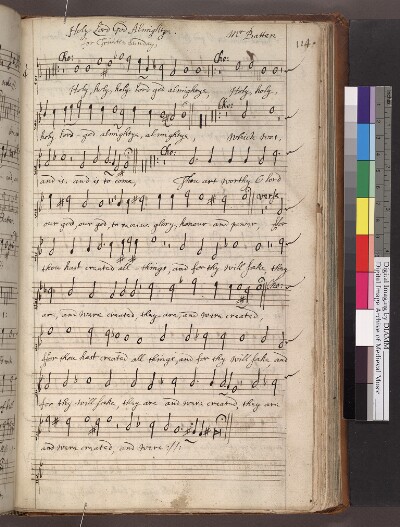 Holy Lord God Almightye. Mr Batten 114.
for Trinitie Sunday.
Cho: Cho:
Holy, holy, holy Lord god almightye, Holy, holy,
Cho:
holy Lord god almightye, almightye, which was,
Cho:
and is, and is to come, Thou art worthy O lord
verse
our god, our god, to receive glory, honour, and power, ffor
thou hast created all things, and for thy will sake, they
Cho:
are, and were created, they are, and were created,
ffor thou hast created all things, and for thy will sake and
for thy will sake, they are and were created, they are
and were created, and were
Digital Imaging by DIAMM
Digital Image Archive of Medieval Music